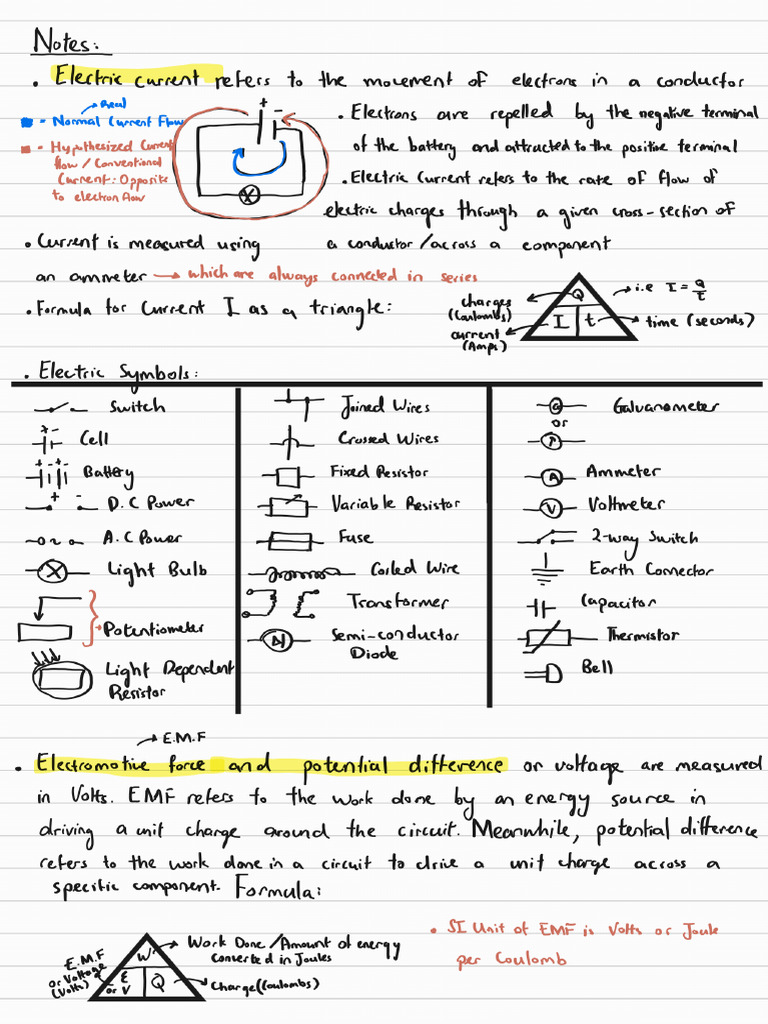 Notes:
. Electric current refers to the movement of electrons in a conductor
Real
= Normal Current Flow
+ -
. Electrons are repelled by the negative terminal
of the battery and attracted to the positive terminal
= Hypothesized Current
flow / Conventional
Current: Opposite
to electron flow
. Electric Current refers to the rate of flow of
electric charges through a given cross-section of
a conductor / across a component
. Current is measured using
an ammeter → which are always connected in series
. Formula for Current I as a triangle:
charges
(Coulombs)
current
(Amps)
Q
I t
i.e I = Q/t
time (seconds)
. Electric Symbols:
Switch
+ -
Cell
+ - + -
Battery
+ -
D.C Power
A.C Power
Light Bulb
Potentiometer
Light Dependent
Resistor
Joined Wires
Crossed Wires
Fixed Resistor
Variable Resistor
Fuse
Coiled Wire
Transformer
Semi-conductor
Diode
G Galvanometer
or
A Ammeter
V Voltmeter
2-way Switch
Earth Connector
Capacitor
Thermistor
Bell
→ E.M.F
. Electromotive force and potential difference or voltage are measured
in Volts. EMF refers to the work done by an energy source in
driving a unit charge around the circuit. Meanwhile, potential difference
refers to the work done in a circuit to drive a unit charge across a
specific component. Formula:
E.M.F
or Voltage
(Volts)
W
E
or V
Q
Work Done / Amount of energy
converted in Joules
Charge (Coulombs)
. SI Unit of EMF is Volts or Joule
per Coulomb